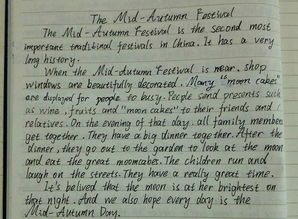 The Mid-Autumn Festival
The Mid-Autumn Feseival is the second most
important traditional festivals in China. It has a very
long history.
When the Mid-Autumn Festival is near, shop
windows are beautifully decorated. Many "moon cakes"
are displayed for people to busy. People send presents such
as wine, fruits and "moon cakes" to their friends and
relatives. On the evening of that day, all family members
get together. They have a big dinner together. After the
dinner, they go out to the garden to look at the moon
and eat the great mooncabes. The children run and
laugh on the streets. They have a really great time.
It's belived that the moon is at her brightest on
that night. And we also hope every day is the
Mid-Autumn Day.